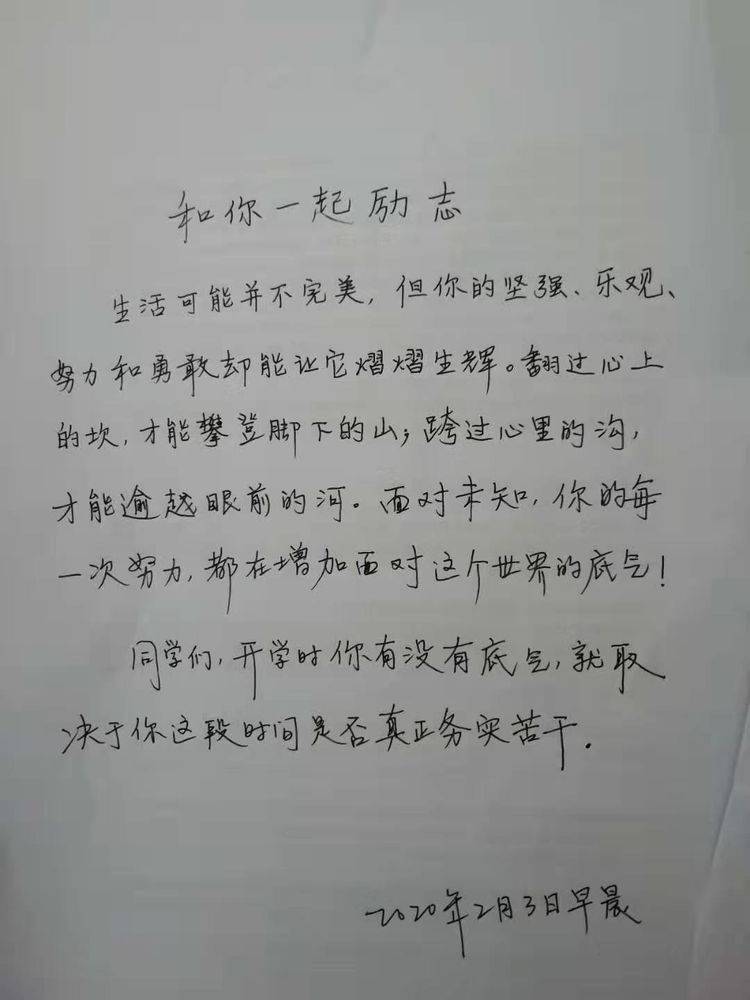 和你一起励志
生活可能并不完美，但你的坚强、乐观、
努力和勇敢却能让它熠熠生辉。翻过心上
的坎，才能攀登脚下的山；跨过心里的沟，
才能逾越眼前的河。面对未知，你的每
一次努力，都在增加面对这个世界的底气！
同学们，开学时你有没有底气，就取
决于你这段时间是否真正务实苦干。
2020年2月3日早晨